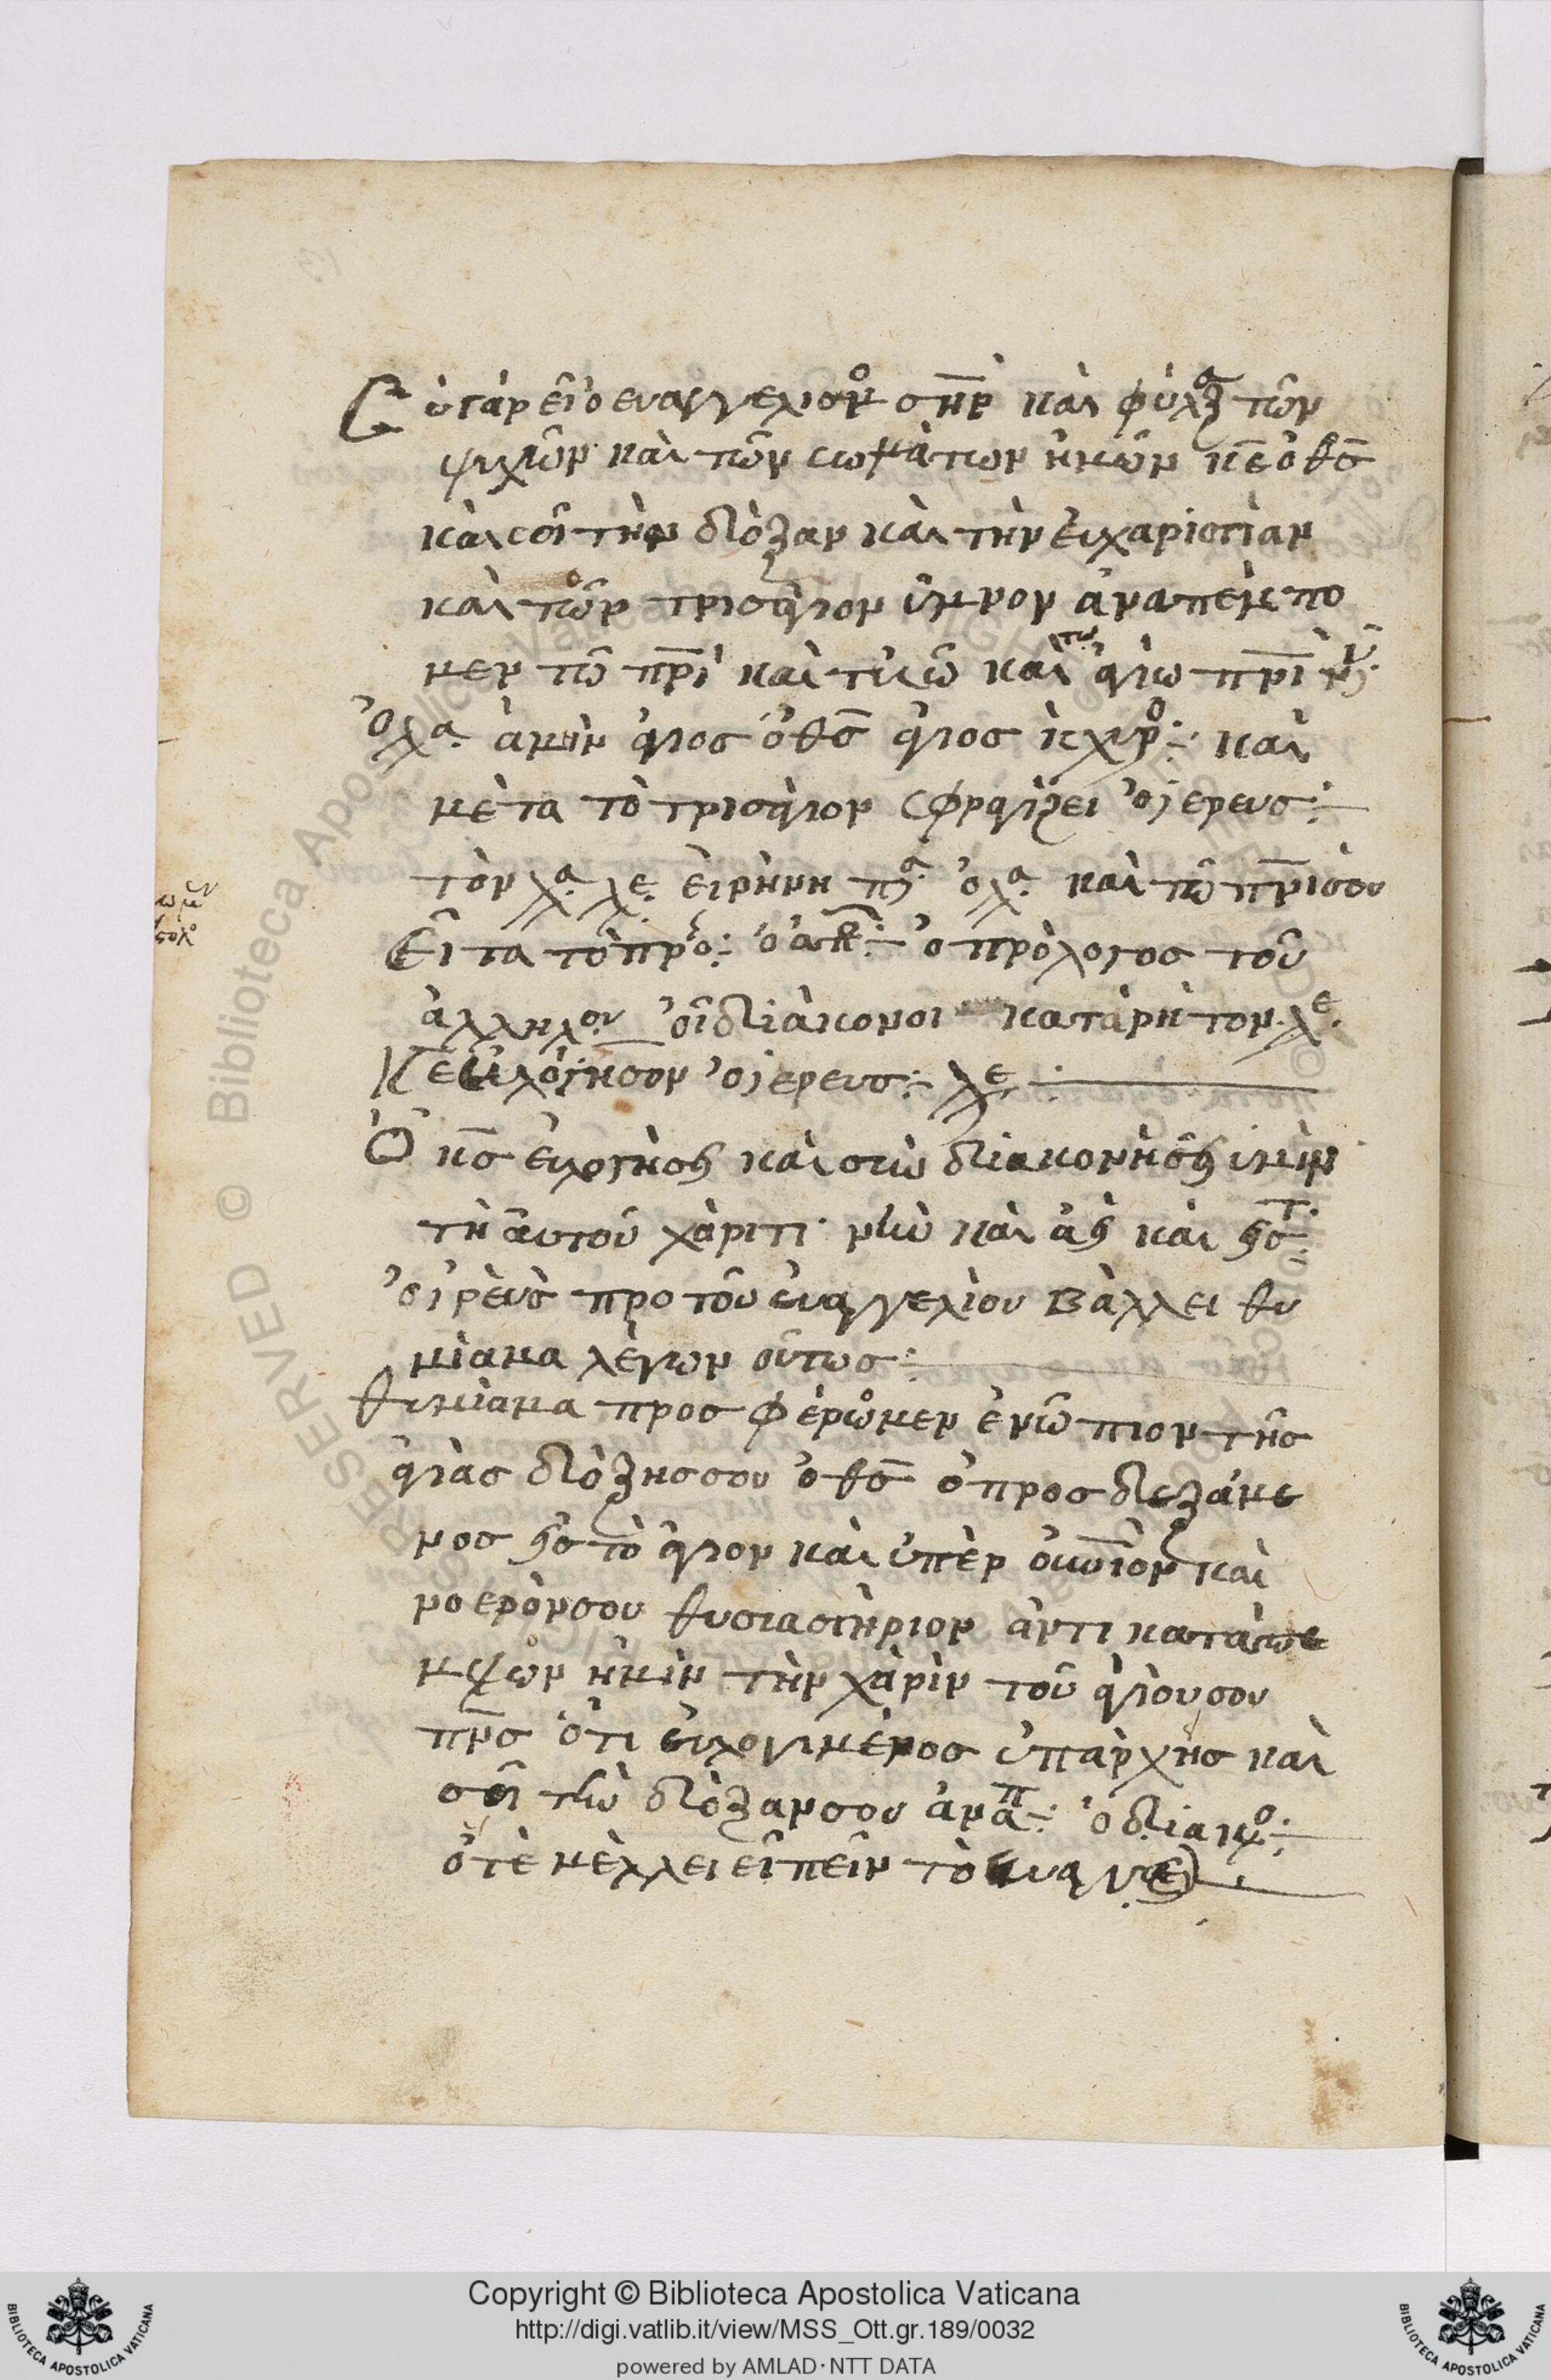 Σὺ γὰρ εῖ ὁ ευαγγελισμο σηρ καὶ φύλαξ τῶν
ψυχῶν καὶ τῶν σωμάτων ἡμῶν κε ὁ θς
καὶ σοῖ τὴν δόξαν καὶ τὴν ἐυχαριστίαν
καὶ τῶν τρισάγιον ὕμνον ἀναπέμπο
μεν τῶ πρὶ καὶ τῶ υιῶ καὶ τω ἁγίω πνι νῦ κ
Ὁ λα ἀμὴν ἅγιος ὁ θς ἅγιος ἰσχυρο: καὶ
μέτα τὸ τρισάγιον σφραγίζει ὁ ἱερευς:
τὸν λα λε ἐιρήνη πα ὁ λα καὶ τῶ πνι σου
Εῖτα τὸ προ: ὁ ἀπ: ὁ πρόλογος τοῦ
ἀλληλου οἱ διάκονοι κατὰ ρητον λε
Κε ἐυλόγησον ὁ ἱερευς: λε:
Ὁ κς ἐυλογήσῃ καὶ συν διακονήσῃ ὑμῖν
τῇ αυτοῦ χάριτι νῦν καὶ ἀεὶ καὶ εἰς τ:
ὁ ἱρεὺς προ τοῦ ἐυαγγελίου βάλλει θυ
μίαμα λέγων οὕτως:
θυμίαμα προσφέρομεν ἐνώπιον τῆς
ἁγίας δόξης σου ὁ θς ὁ προσδεξάμε
νος εἰς τὸ ἅγιον καὶ ὑπὲρ οὐράνιον καὶ
νοερόν σου θυσιαστήριον ἀντικατάπε
μψον ἡμῖν τὴν χάριν τοῦ ἁγίου σου
πνς ὅτι ἐυλογιμένος ὑπάρχῃς καὶ
σοῖ τὴν δόξαν σου ἀναπ: ὁ διακο:
ὁτὲ μέλλει εἰπεῖν τὸ ἐυαγγε
Copyright © Biblioteca Apostolica Vaticana
http://digi.vatlib.it/view/MSS_Ott.gr.189/0032
powered by AMLAD·NTT DATA
BIBLIOTECA APOSTOLICA VATICANA
BIBLIOTECA APOSTOLICA VATICANA